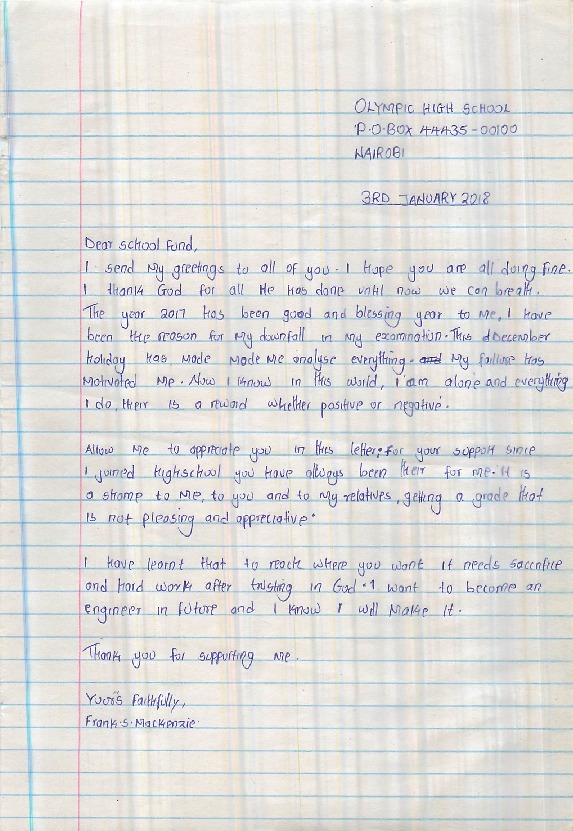 OLYMPIC HIGH SCHOOL
P.O.BOX 44435-00100
NAIROBI
3RD JANUARY 2018
Dear school Fund,
I send My greetings to all of you. I Hope you are all doing fine.
I thank God for all He Has done until now we can breath.
The year 2017 Has been good and blessing year to Me, I Have
been the reason for My downfall in My examination. This dDecember
Holiday Has Made Made Me analyse everything. and My failure Has
Motivated Me. Now I know in this world, I am alone and everything
I do, their is a reward whether positive or negative.
Allow Me to appreciate you in this letter; for your support since
I joined Highschool you Have always been their for Me. It is
a shame to Me, to you and to My relatives, getting a grade that
is not pleasing and appreciative.
I Have learnt that to reach where you want it needs sacrifice
and hard work after trusting in God. I want to become an
engineer in future and I know I will Make it.
Thank you for supporting Me.
Yours Faithfully,
Frank.S.Mackenzie.